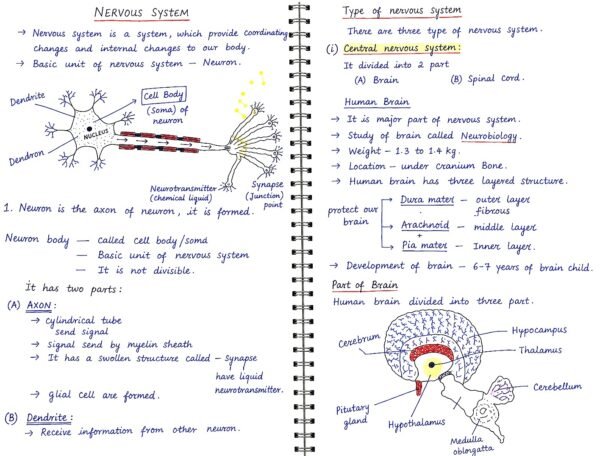 NERVOUS SYSTEM
→ Nervous system is a system, which provide coordinating
changes and internal changes to our body.
→ Basic unit of nervous system — Neuron.
Dendrite
Cell Body
(Soma) of
neuron
NUCLEUS
Dendron
Neurotransmitter
(chemical liquid)
Synapse
(Junction)
point
1. Neuron is the axon of neuron, it is formed.
Neuron body — called cell body/soma
— Basic unit of nervous system
— It is not divisible.
It has two parts:
(A) AXON:
→ cylindrical tube
send signal
→ signal send by myelin sheath
→ It has a swollen structure called — synapse
have liquid
neurotransmitter.
→ glial cell are formed.
(B) Dendrite:
→ Receive information from other neuron.
Type of nervous system
There are three type of nervous system.
(i) Central nervous system:
It divided into 2 part
(A) Brain (B) Spinal cord.
Human Brain
→ It is major part of nervous system.
→ Study of brain called Neurobiology.
→ Weight - 1.3 to 1.4 kg.
→ Location - under Cranium Bone.
→ Human brain has three layered structure.
protect our
brain
→ Dura mater — outer layer
fibrous
→ Arachnoid — middle layer
+
→ Pia mater — Inner layer.
→ Development of brain - 6-7 years of brain child.
Part of Brain
Human brain divided into three part.
Cerebrum
Hypocampus
Thalamus
Cerebellum
Pitutary
gland
Hypothalamus
Medulla
oblongatta